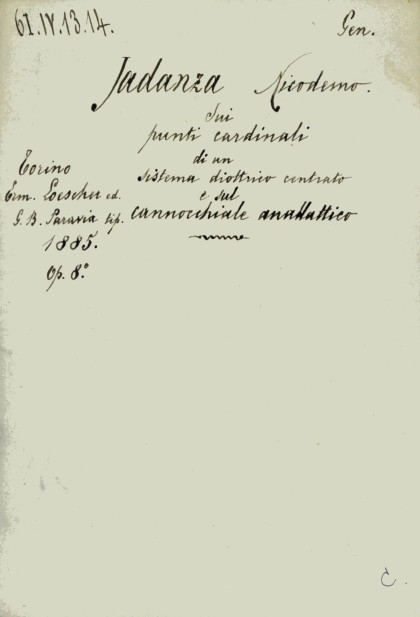 61.IV.13.14.
Gen.
Jadanza Nicodemo.
Sui
punti cardinali
di un
sistema diottrico centrato
e sul
cannocchiale anallattico
Torino
Erm. Loescher ed.
G. B. Paravia tip.
1885.
Op. 8.º
C.